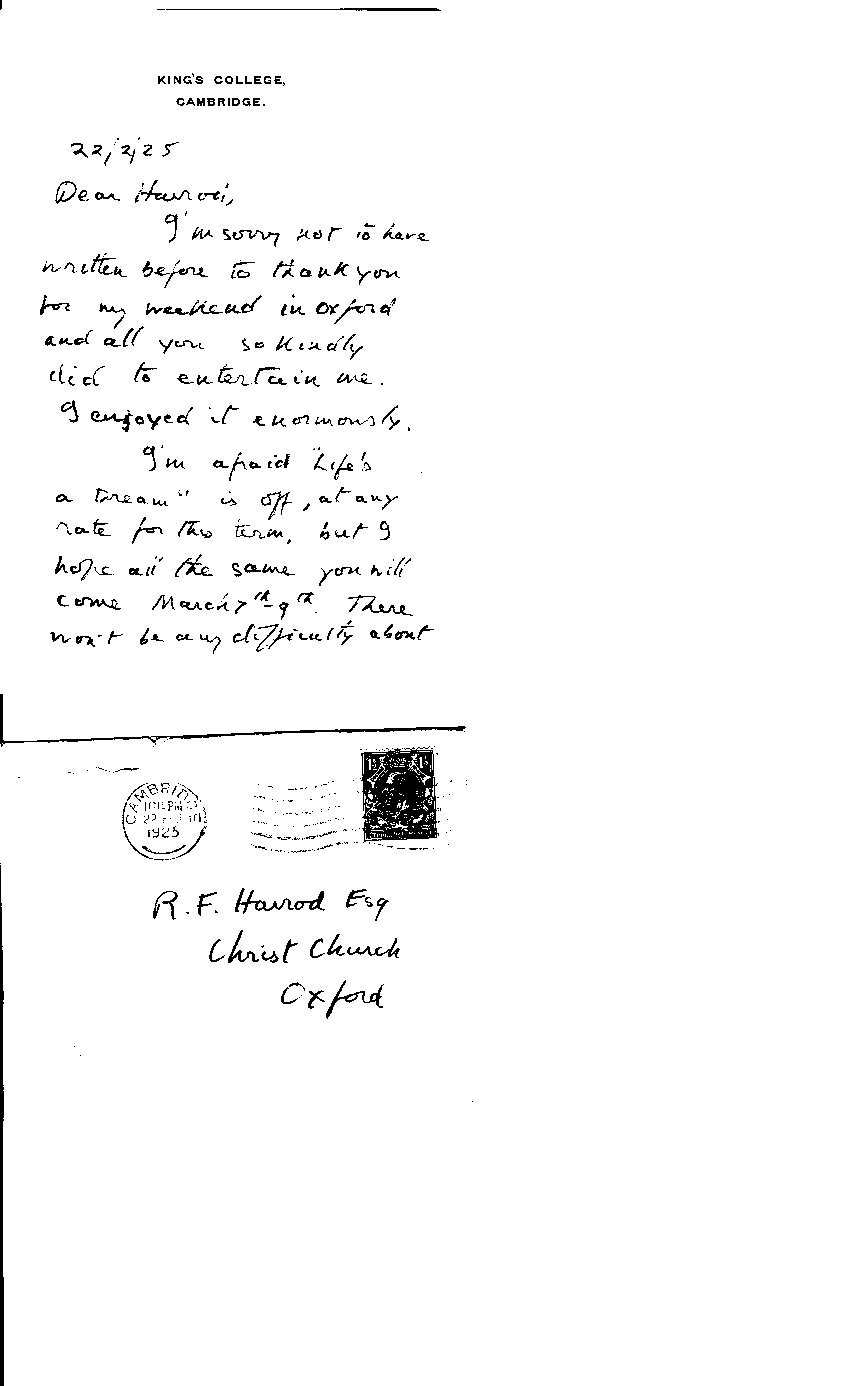 KING'S COLLEGE,
CAMBRIDGE.
22/2/25
Dear Harrod,
I'm sorry not to have
written before to thank you
for my weekend in Oxford
and all you so kindly
did to entertain me.
I enjoyed it enormously.
I'm afraid "Life's
a Dream" is off, at any
rate for this term, but I
hope all the same you will
come March 7th-9th. There
won't be any difficulty about
1½ 1½
CAMBRIDG
PM
1925
R.F. Harrod Esq
Christ Church
Oxford